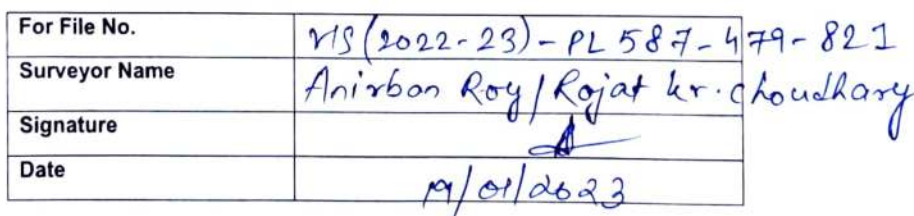 For File No. VIS(2022-23)-PL587-479-821
Surveyor Name Anirban Roy/Rajat kr. choudhary
Signature
Date 19/01/2023